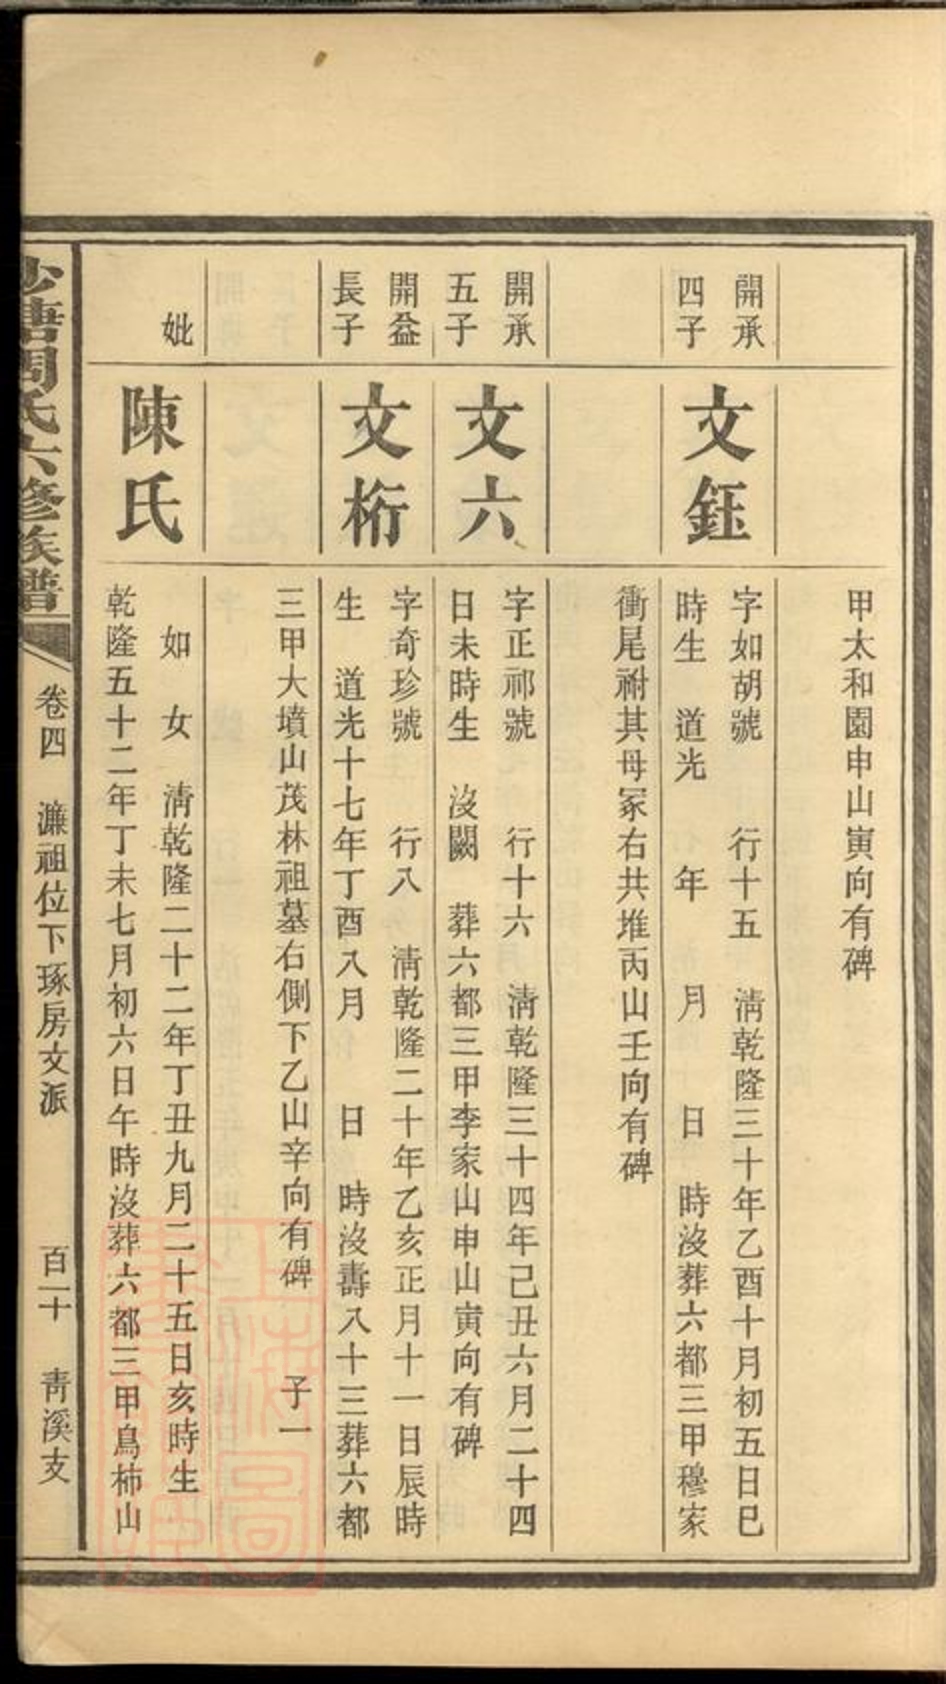 甲太和園申山寅向有碑
開承
四子
文鈺
字如胡號 行十五 淸乾隆三十年乙酉十月初五日巳
時生 道光 年 月 日 時沒葬六都三甲穆家
衝尾祔其母冢右共堆丙山壬向有碑
開承
五子
文六
字正祁號 行十六 淸乾隆三十四年己丑六月二十四
日未時生 沒闕 葬六都三甲李家山申山寅向有碑
開益
長子
文桁
字奇珍號 行八 淸乾隆二十年乙亥正月十一日辰時
生 道光十七年丁酉八月 日 時沒壽八十三葬六都
三甲大墳山茂林祖墓右側下乙山辛向有碑 子一
妣
陳氏
如 女 淸乾隆二十二年丁丑九月二十五日亥時生
乾隆五十二年丁未七月初六日午時沒葬六都三甲鳥柿山
沙塘周氏六修族譜
卷四 濂祖位下琢房文派 百二十 靑溪支